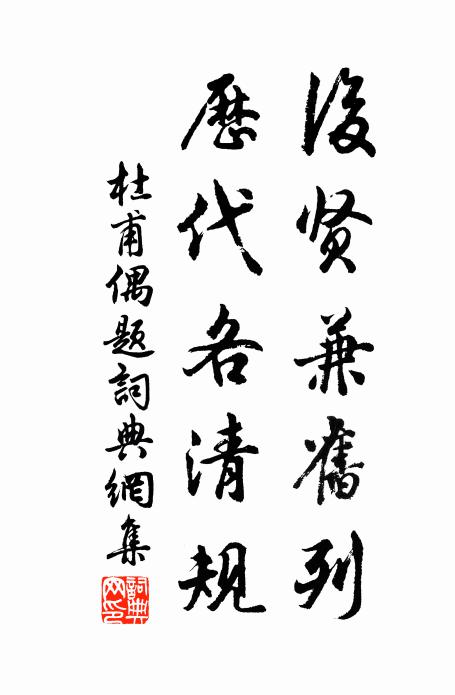 後贤兼舊列
歷代各清規
杜甫偶題詞典網集
詞典网印